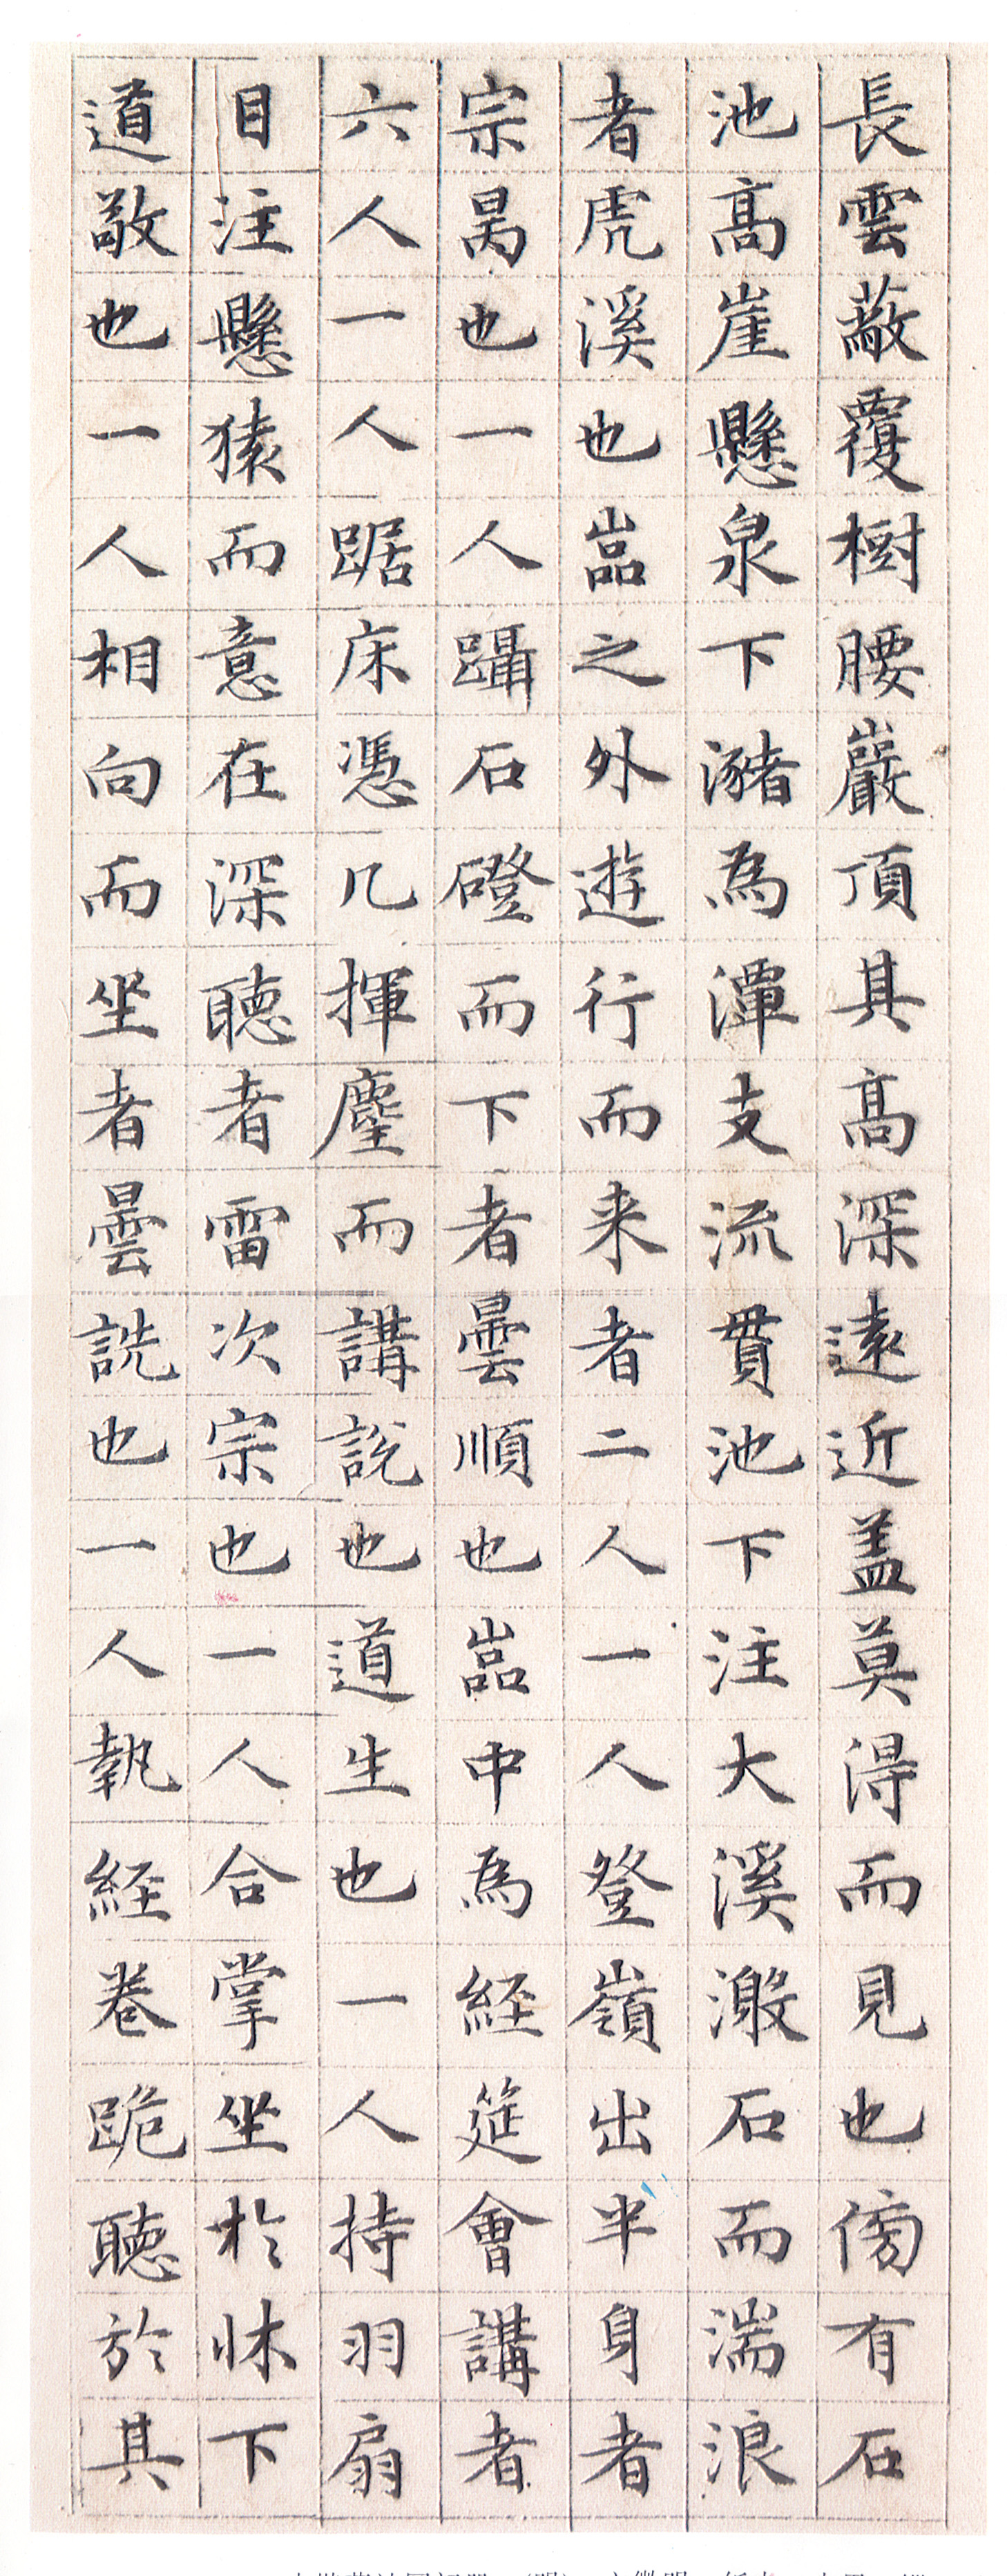 長雲蔽覆樹腰巖頂其高深遠近蓋莫得而見也傍有石
池高崖懸泉下瀦為潭支流貫池下注大溪激石而湍浪
者虎溪也嵓之外遊行而来者二人一人登嶺出半身者
宗昺也一人躡石磴而下者曇順也嵓中為經筵會講者
六人一人踞床憑几揮麈而講說也道生也一人持羽扇
目注懸猿而意在深聽者雷次宗也一人合掌坐於牀下
道敬也一人相向而坐者曇詵也一人執經卷跪聽於其